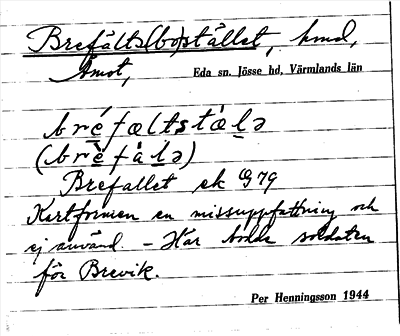 Brefälts(bo)stället, hmd,
Åmot, Eda sn. Jösse hd, Värmlands län
bréfæltstȧ̀lə
(brèfȧlə)
Brefallet ek G79
Kartformen en missuppfattning och
ej använd. - Här bodde soldaten
för Brevik.
Per Henningsson 1944